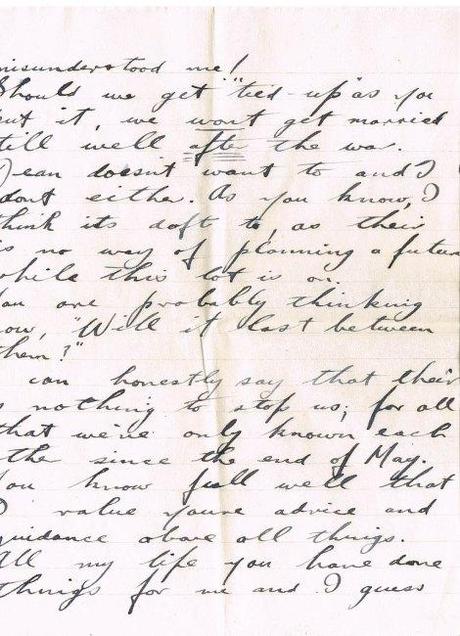 misunderstood me!
Should we get "tied-up" as you
put it, we wont get married
till well after the war.
Jean doesnt want to and I
dont either. As you know, I
think its daft to, as their
is no way of planning a future
while this lot is on.
You are probably thinking
now, "Will it last between
them?"
I can honestly say that their
is nothing to stop us; for all
that we've only known each
other since the end of May.
You know full well that
I value youre advice and
guidance above all things.
All my life you have done
things for me and I guess